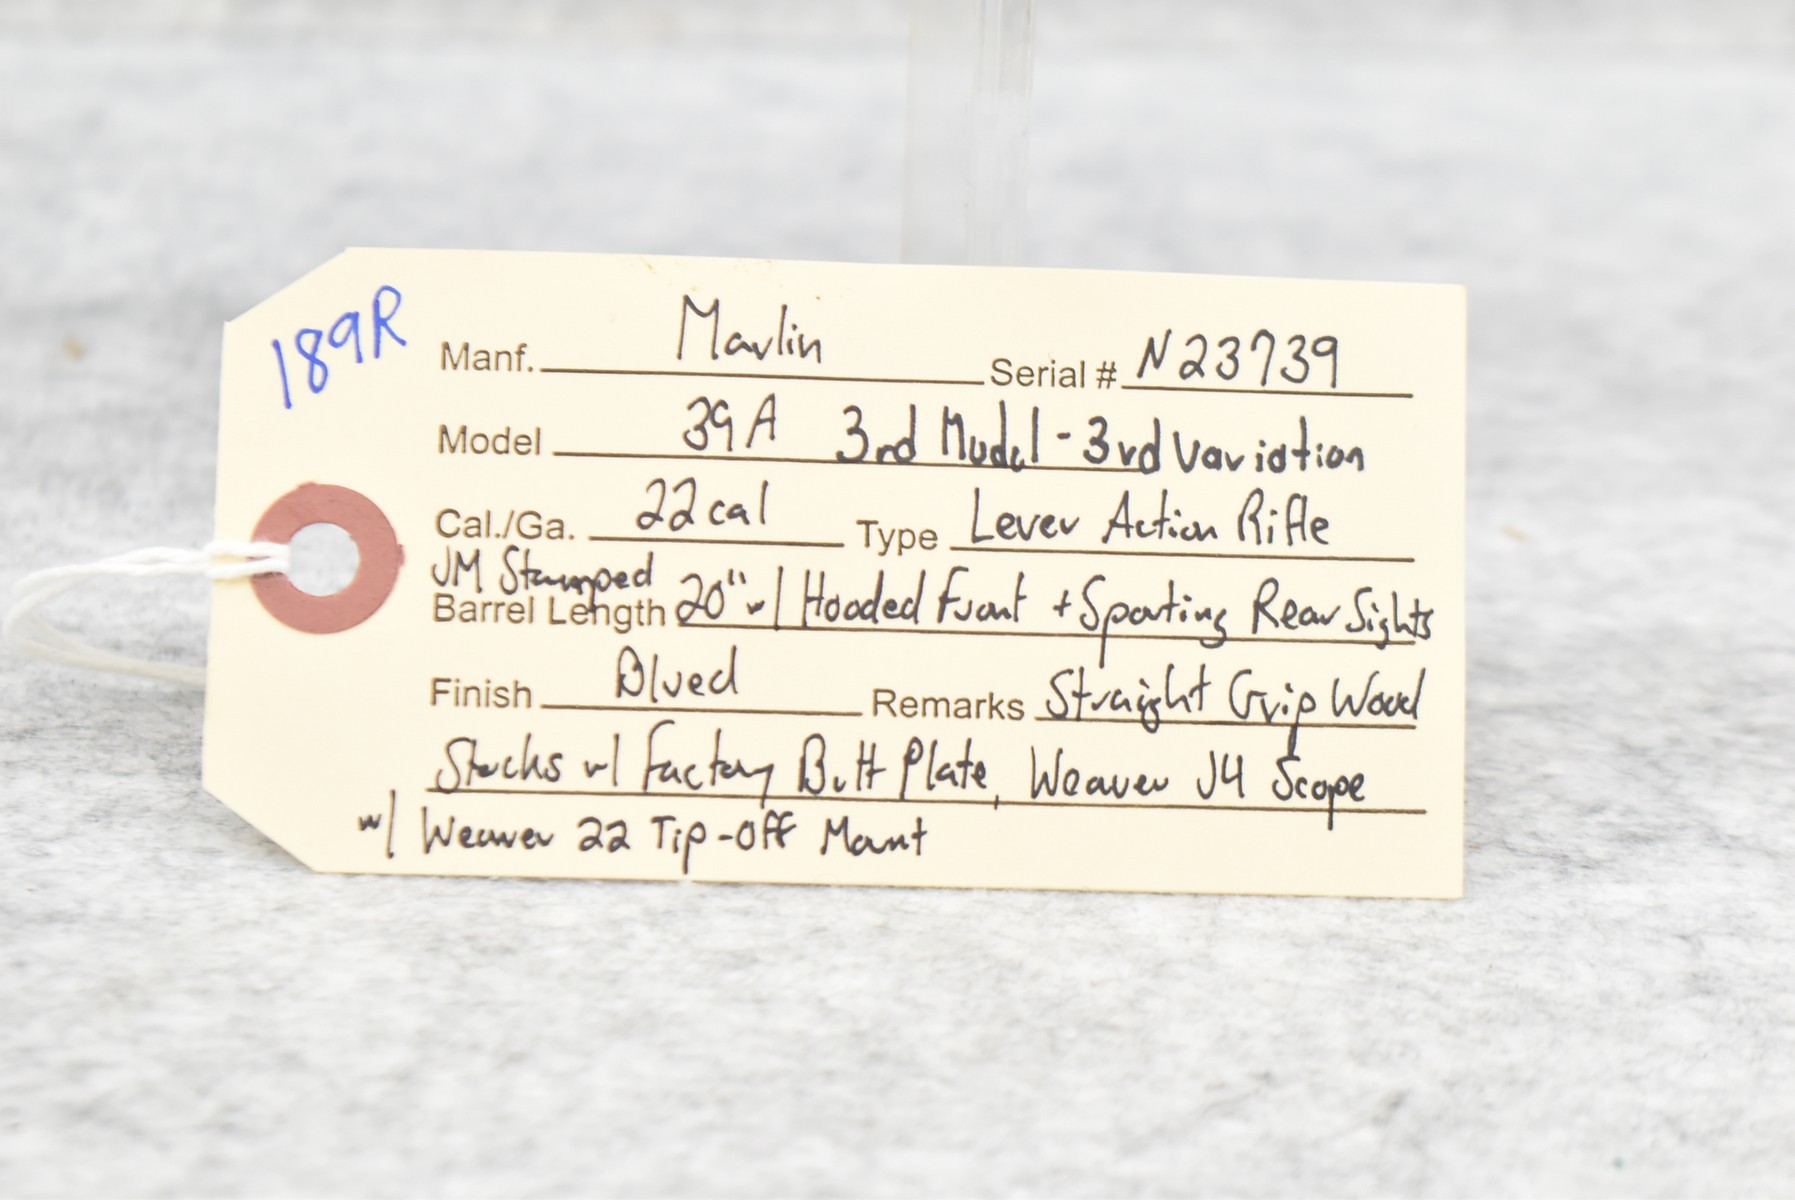 189R
Manf. Marlin Serial # N23739
Model 39A 3rd Model - 3rd Variation
Cal./Ga. 22 cal Type Lever Action Rifle
JM Stamped
Barrel Length 20" w/ Hooded Front + Sporting Rear Sights
Finish Blued Remarks Straight Grip Wood
Stocks w/ Factory Butt Plate, Weaver J4 Scope
w/ Weaver 22 Tip-Off Mount